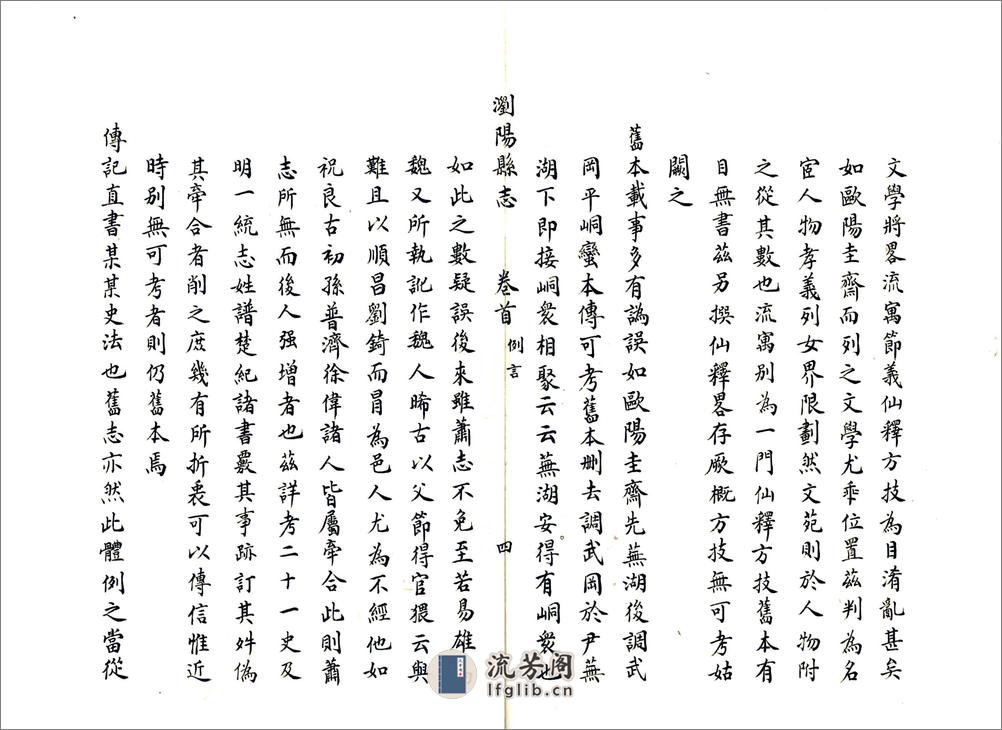 文學將畧流寓節義仙釋方技為目淆亂甚矣
如歐陽圭齋而列之文學尤乖位置茲判為名
宦人物孝義列女界限劃然文苑則於人物附
之從其數也流寓別為一門仙釋方技舊本有
目無書茲另撰仙釋畧存厥概方技無可考姑
闕之
舊本載事多有譌誤如歐陽圭齋先蕪湖後調武
岡平峒蠻本傳可考舊本刪去調武岡於尹蕪
湖下即接峒衆相聚云云蕪湖安得有峒衆也
瀏陽縣志 卷首 例言 四
如此之數疑誤後來雖蕭志不免至若易雄
魏乂所執訛作魏人晞古以父節得官猥云與
難且以順昌劉錡而冒為邑人尤為不經他如
祝良古初孫普濟徐偉諸人皆屬牽合此則蕭
志所無而後人强增者也茲詳考二十一史及
明一統志姓譜楚紀諸書覈其事跡訂其舛偽
其牽合者削之庶幾有所折衷可以傳信惟近
時別無可考者則仍舊本焉
傳記直書某某史法也舊志亦然此體例之當從
流芳阁
lfglib.cn